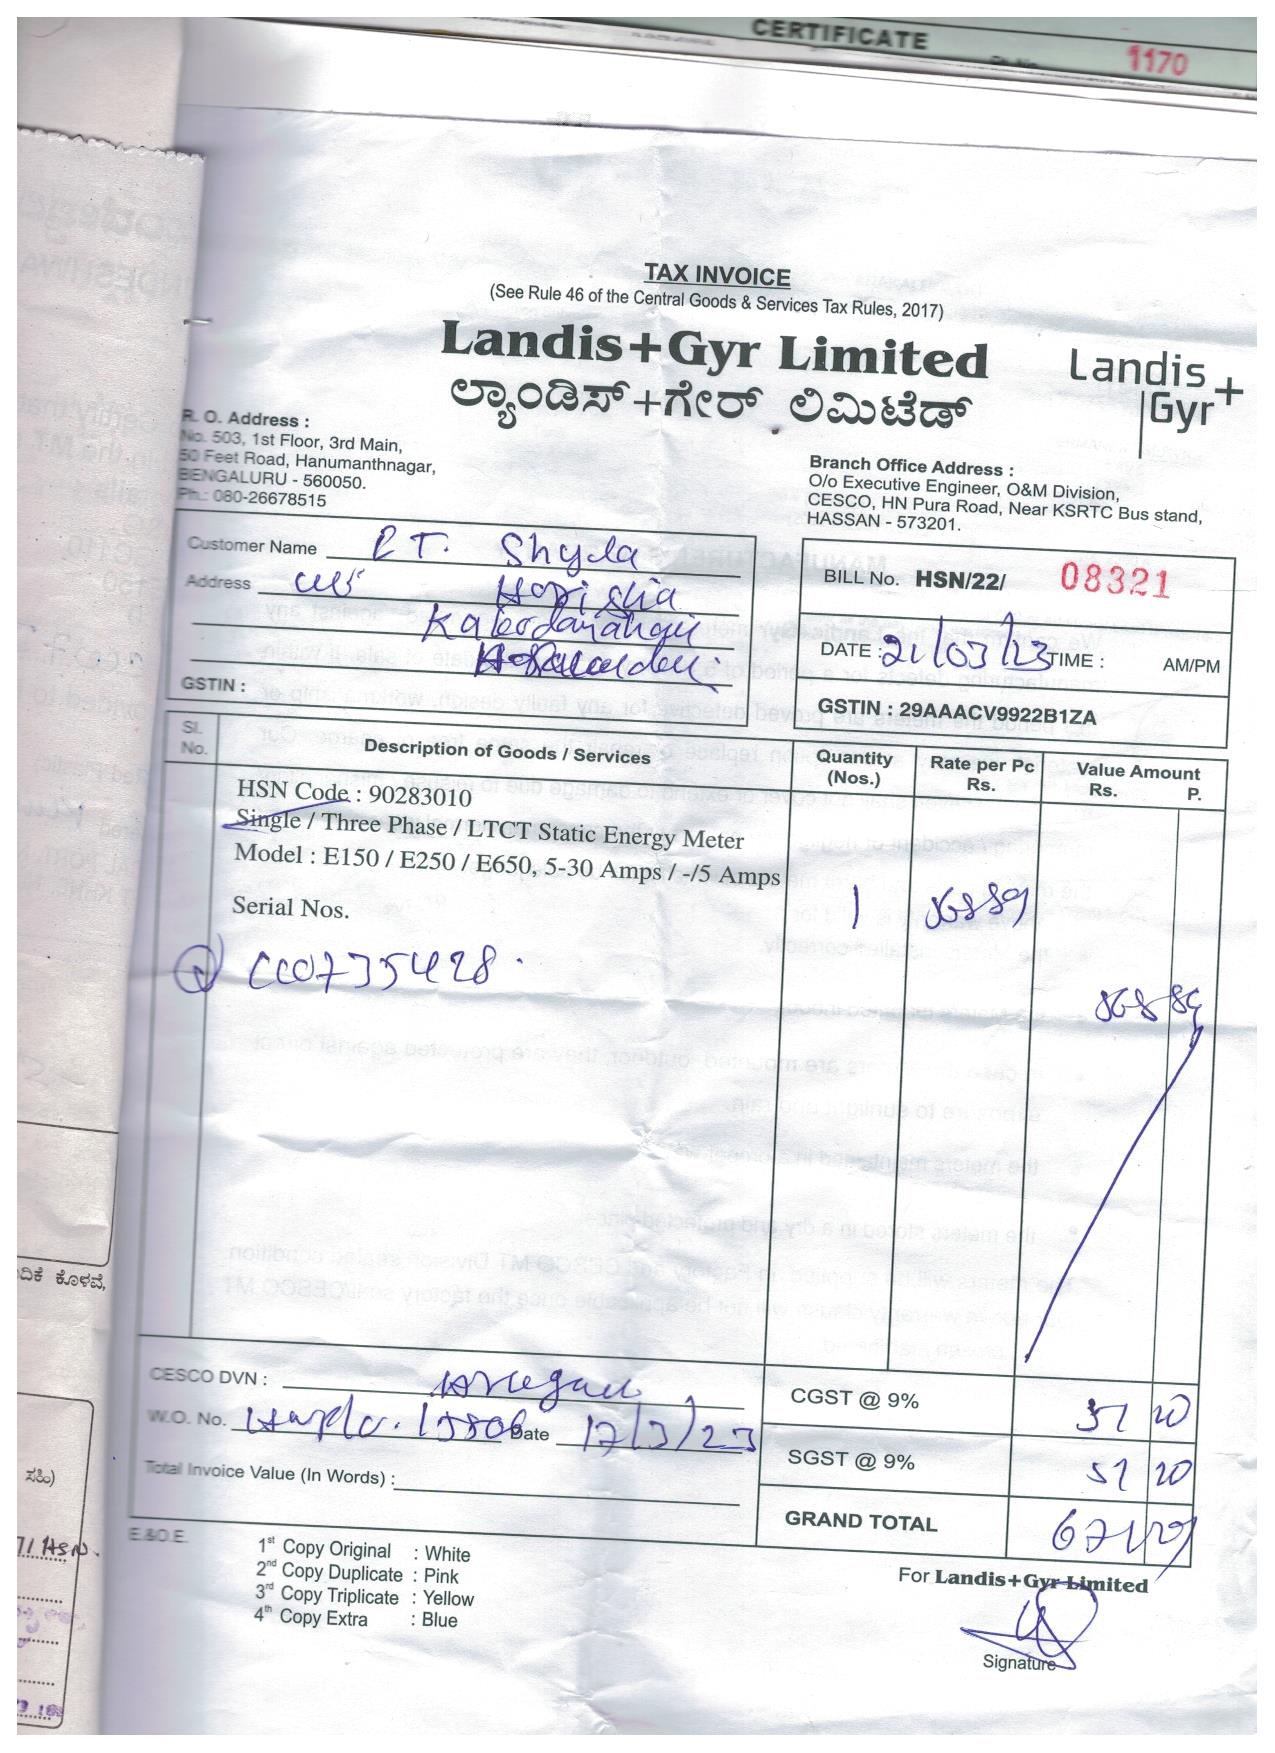 CERTIFICATE
1170
TAX INVOICE
(See Rule 46 of the Central Goods & Services Tax Rules, 2017)
Landis+Gyr Limited
ಲ್ಯಾಂಡಿಸ್+ಗೇರ್ ಲಿಮಿಟೆಡ್
Landis+
Gyr
R. O. Address :
No. 503, 1st Floor, 3rd Main,
50 Feet Road, Hanumanthnagar,
BENGALURU - 560050.
Ph.: 080-26678515
Branch Office Address :
O/o Executive Engineer, O&M Division,
CESCO, HN Pura Road, Near KSRTC Bus stand,
HASSAN - 573201.
Customer Name
Shyla
Address
GSTIN :
BILL No. HSN/22/ 08321
DATE : 21/03/23 TIME : AM/PM
GSTIN : 29AAACV9922B1ZA
Sl. No. Description of Goods / Services Quantity (Nos.) Rate per Pc Rs. Value Amount Rs. P.
HSN Code : 90283010
Single / Three Phase / LTCT Static Energy Meter
Model : E150 / E250 / E650, 5-30 Amps / -/5 Amps
1
Serial Nos.
CESCO DVN :
W.O. No. Date 17/3/23
Total Invoice Value (In Words) :
CGST @ 9% 51 20
SGST @ 9% 51 20
GRAND TOTAL
E.&O.E.
1st Copy Original : White
2nd Copy Duplicate : Pink
3rd Copy Triplicate : Yellow
4th Copy Extra : Blue
For Landis+Gyr Limited
Signature